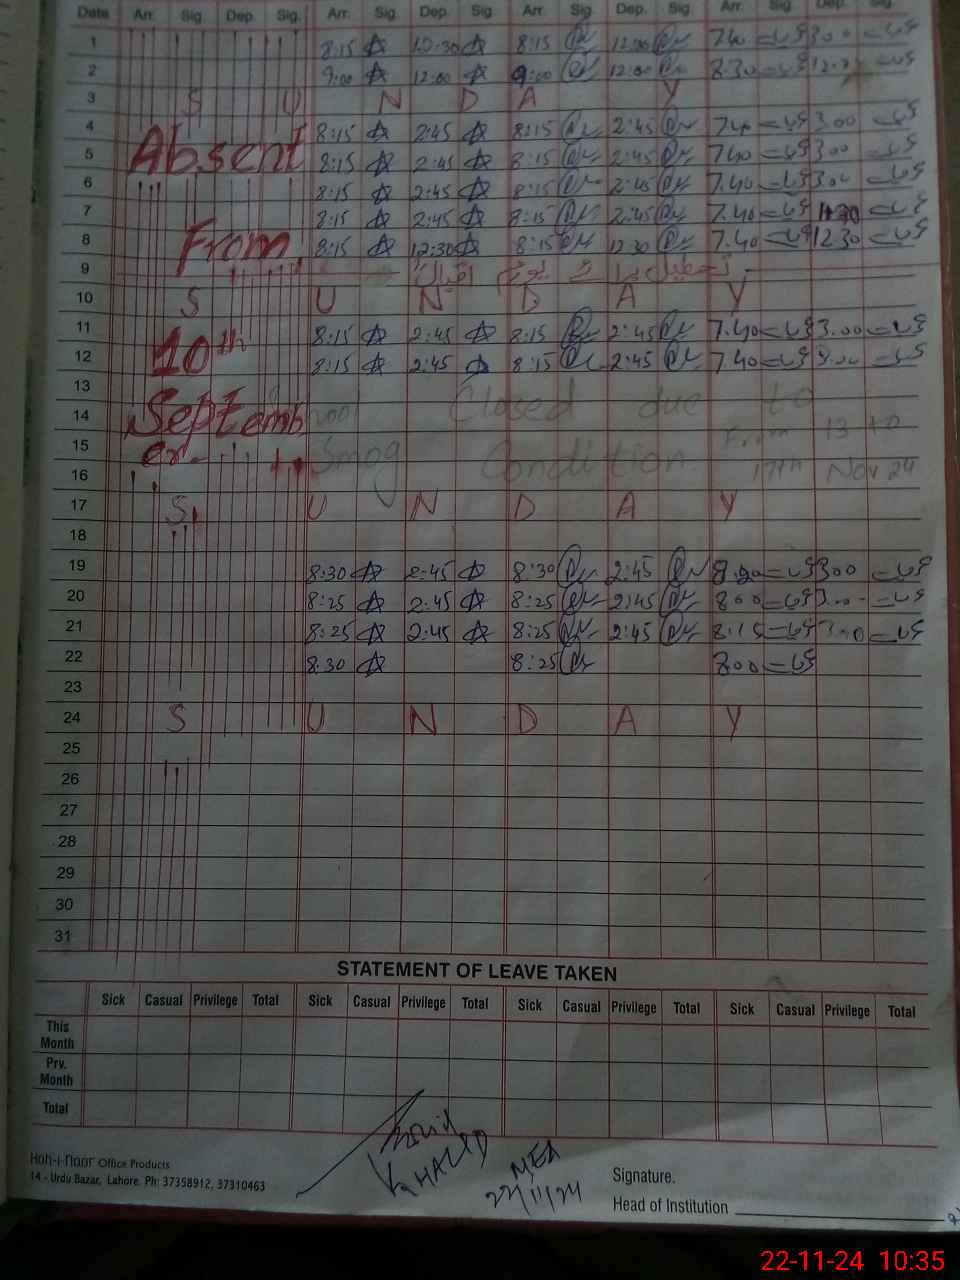 Date Arr. Sig. Dep. Sig. Arr. Sig. Dep. Sig. Arr. Sig. Dep. Sig. Arr. Sig. Dep. Sig.
1 8:15 12:30 8:15 12:00 7.40 3.00
2 9:00 12:00 9:00 12:00 8.30
3 S U N D A Y
4 8:15 2:45 8:15 2:45 7.40 3.00
Absent
5 8:15 2:45 8:15 2:45 7.40 3.00
6 8:15 2:45 8:15 2:45 7.40 3.00
7 8:15 2:45 8:15 2:45 7.40
From
8 8:15 12:30 8:15 12:30 7.40 12.30
9 تعطیل برائے یوم اقبال
10 S U N D A Y
11 8:15 2:45 8:15 2:45 7.40 3.00
10th
12 8:15 2:45 8:15 2:45 7.40 3.00
13
14 Closed due to
Septemb
15 From 13 to
er
16 Smog Condition 17th Nov 24
17 S U N D A Y
18
19 8:30 2:45 8:30 2:45 300
20 8:25 2:45 8:25 2:45 800
21 8:25 2:45 8:25 2:45 8:15
22 8:30 8:25 800
23
24 S U N D A Y
25
26
27
28
29
30
31
STATEMENT OF LEAVE TAKEN
Sick Casual Privilege Total Sick Casual Privilege Total Sick Casual Privilege Total Sick Casual Privilege Total
This Month
Prv. Month
Total
KHALID
MEA
22/11/24
Koh-i-Noor Office Products
14 - Urdu Bazar, Lahore. Ph: 37358912, 37310463
Signature.
Head of Institution
22-11-24 10:35